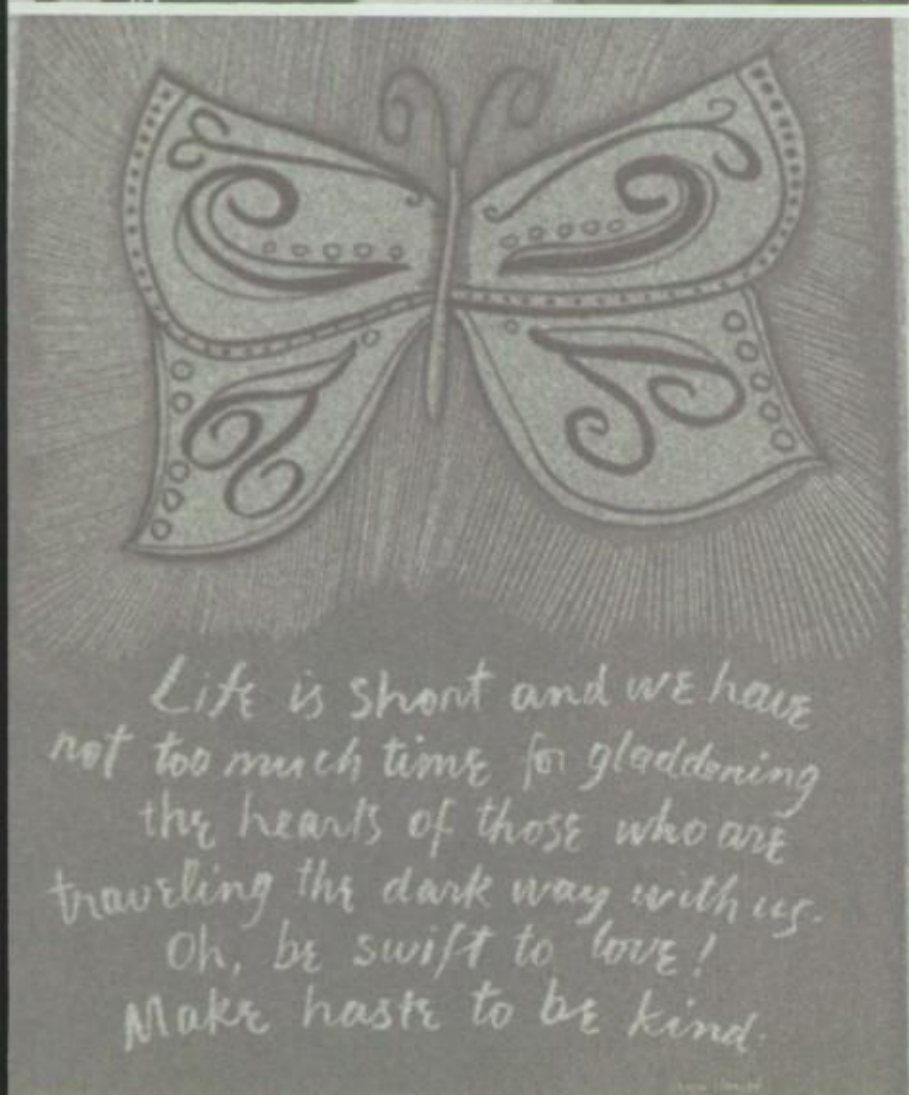 Life is short and we have
not too much time for gladdening
the hearts of those who are
traveling the dark way with us.
Oh, be swift to love!
Make haste to be kind.